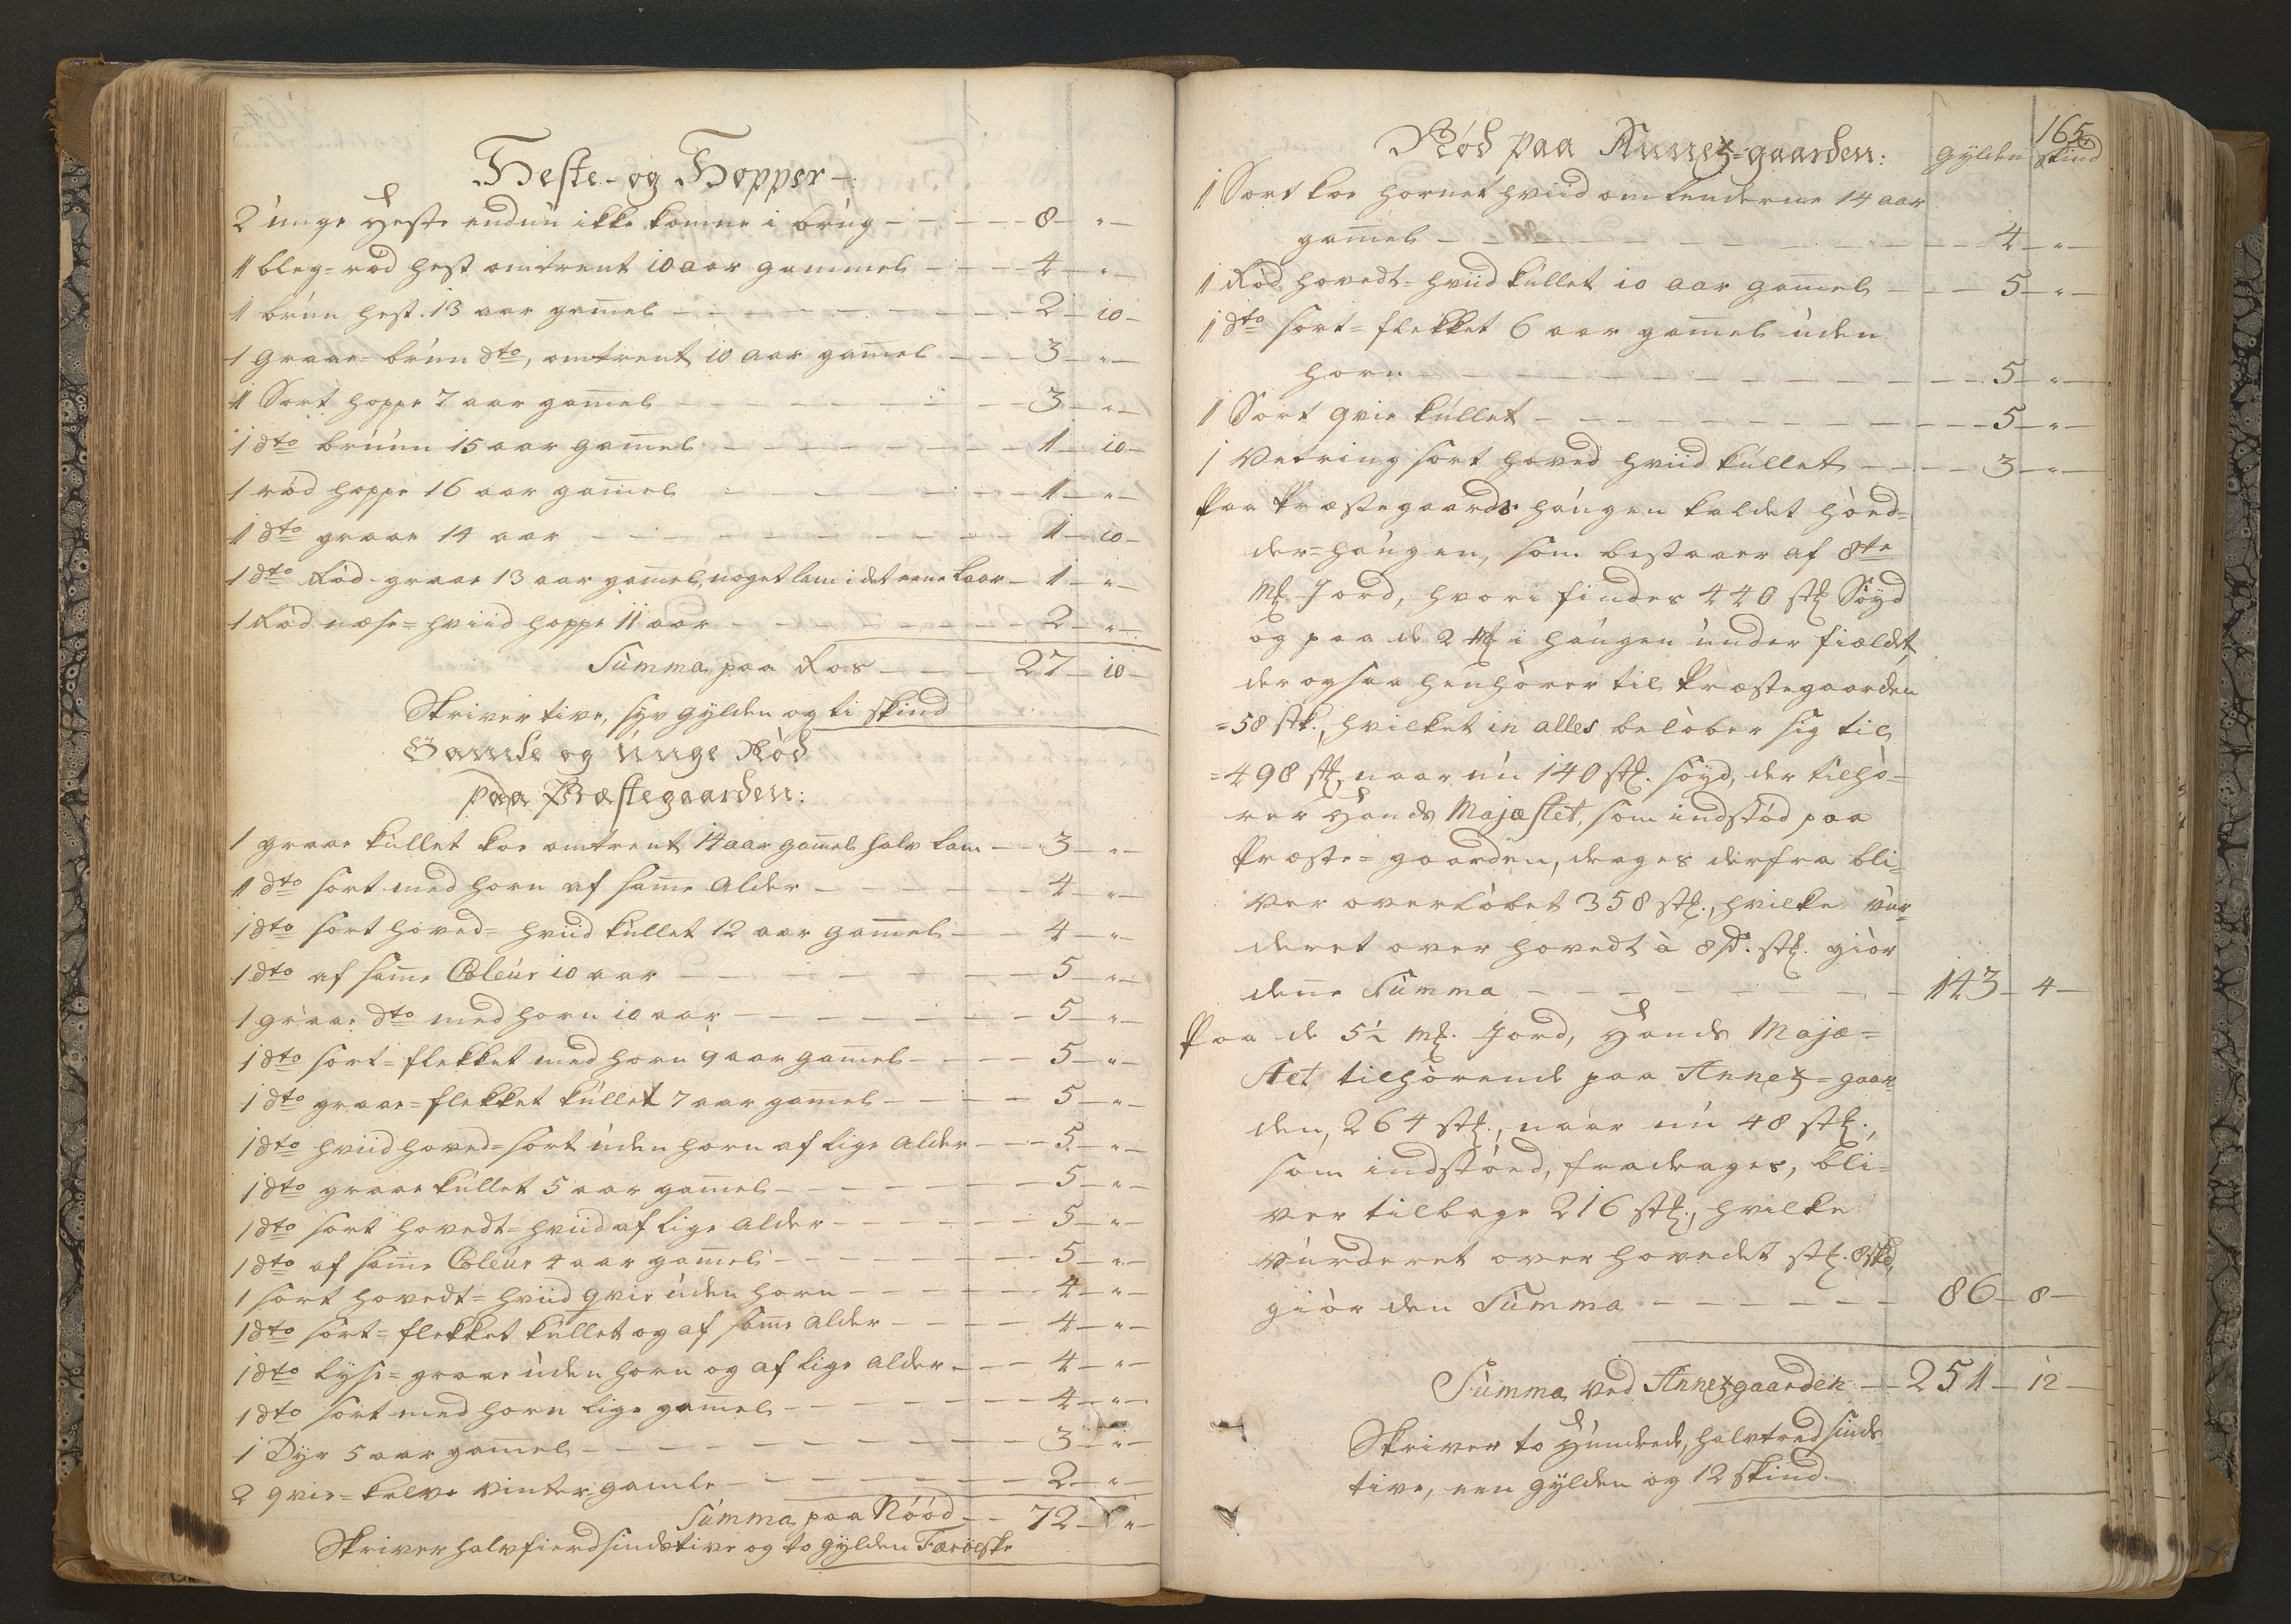 Heste- og Hopper
2 unge Heste endnu ikke komne i brug — 8 — " —
1 bleg=rød hest omtrent 10 aar gammel — 4 — " —
1 brun hest. 13 aar gam̅el — 2 — 10 —
1 Graae=brun dto, omtrent 10 aar gam̅el — 3 — " —
1 Sort hoppe 7 aar gam̅el — 3 — " —
1 dto bruun 15 aar gam̅el — 1 — 10 —
1 rød hoppe 16 aar gam̅el — 1 — " —
1 dto graae 14 aar — 1 — 10 —
1 dto Rød-graae 13 aar gam̅el, noget lam i det eene laar — 1 — " —
1 Rød næse=hviid hoppe 11 aar — 2 — " —
Summa paa Ros — 27 — 10 —
Skriver tive, syv gylden og ti skind
Gamle og Unge Nød
paa Præstegaarden:
1 graae kullet koe omtrent 14 aar gam̅el halv lam — 3 — " —
1 dto sort med horn af sam̅e alder — 4 — " —
1 dto sort hoved=hviid kullet 12 aar gam̅el — 4 — " —
1 dto af sam̅e Coleur 10 aar — 5 — " —
1 graae dto med horn 10 aar — 5 — " —
1 dto sort=flekket med horn 9 aar gam̅el — 5 — " —
1 dto graae=flekket kullet 7 aar gam̅el — 5 — " —
1 dto hviid hoved=sort uden horn af lige alder — 5 — " —
1 dto graae kullet 5 aar gam̅el — 5 — " —
1 dto sort hovedt=hviid af lige alder — 5 — " —
1 dto af sam̅e Coleur 4 aar gam̅el — 5 — " —
1 sort hovedt=hviid qvie uden horn — 4 — " —
1 dto sort=flekket kullet og af sam̅e alder — 4 — " —
1 dto lyse=graae uden horn og af lige alder — 4 — " —
1 dto sort med horn lige gam̅el — 4 — " —
1 Dyr 5 aar gam̅el — 3 — " —
2 qvie=kalve vinter gamle — 2 — " —
Summa paa Nööd — 72 — " —
Skriver halvfierdsindstive og to gylden Færöeske
165
Nød paa Annex=gaarden: gylden skind
1 Sort koe hornet hviid om lenderne 14 aar
gam̅el — 4 — " —
1 Rød hovedt=hviid kullet 10 aar gam̅el — 5 — " —
1 dto sort=flekket 6 aar gam̅el uden
horn — 5 — " —
1 Sort qvie kullet — 5 — " —
1 Vetring sort hoved hviid kullet — 3 — " —
Paa Præstegaards haugen kaldet hoed=
der=haugen, som bestaaer af 8te
Mk Jord, hvori findes 440 stk Søyd
og paa de 2 Mk i haugen under fieldet,
der ogsaa henhører til Præstegaarden
=58 stk., hvilket in alles beløber sig til
=498 stk, naar nu 140 stk. søyd, der tilhø=
rer Hands Majæstet, som indstod paa
Præste=gaarden, drages derfra bli=
ver overløbet 358 stk., hvilke vur=
deret over hovedt à 8 s. stk. giør
den̅e Summa — 143 — 4 —
Paa de 5½ Mk. Jord, Hands Majæ=
stet tilhørende paa Annex=gaar=
den, 264 stk., naar nu 48 stk.,
som indstoed, fradrages, bli=
ver tilbage 216 stk., hvilke
vurderet over hovedet stk. 8 skd,
giør den Summa — 86 — 8 —
Summa ved Annexgaarden — 251 — 12 —
Skriver to Hundrede, halvtredsinds=
tive, een gylden og 12 skind.